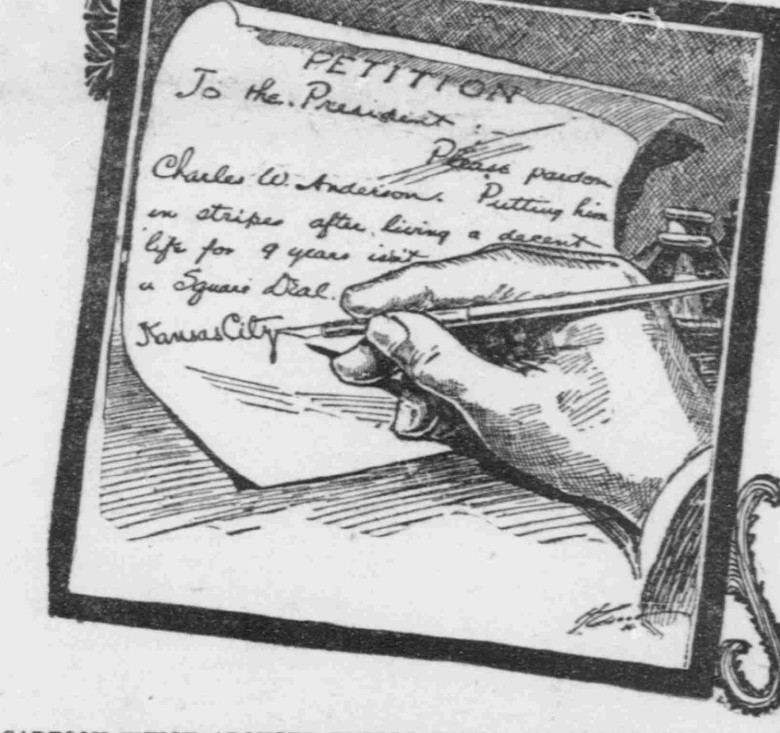 PETITION
To the President:
Please pardon
Charles W. Anderson. Putting him
in stripes after living a decent
life for 9 years isn't
a Square Deal.
Kansas City